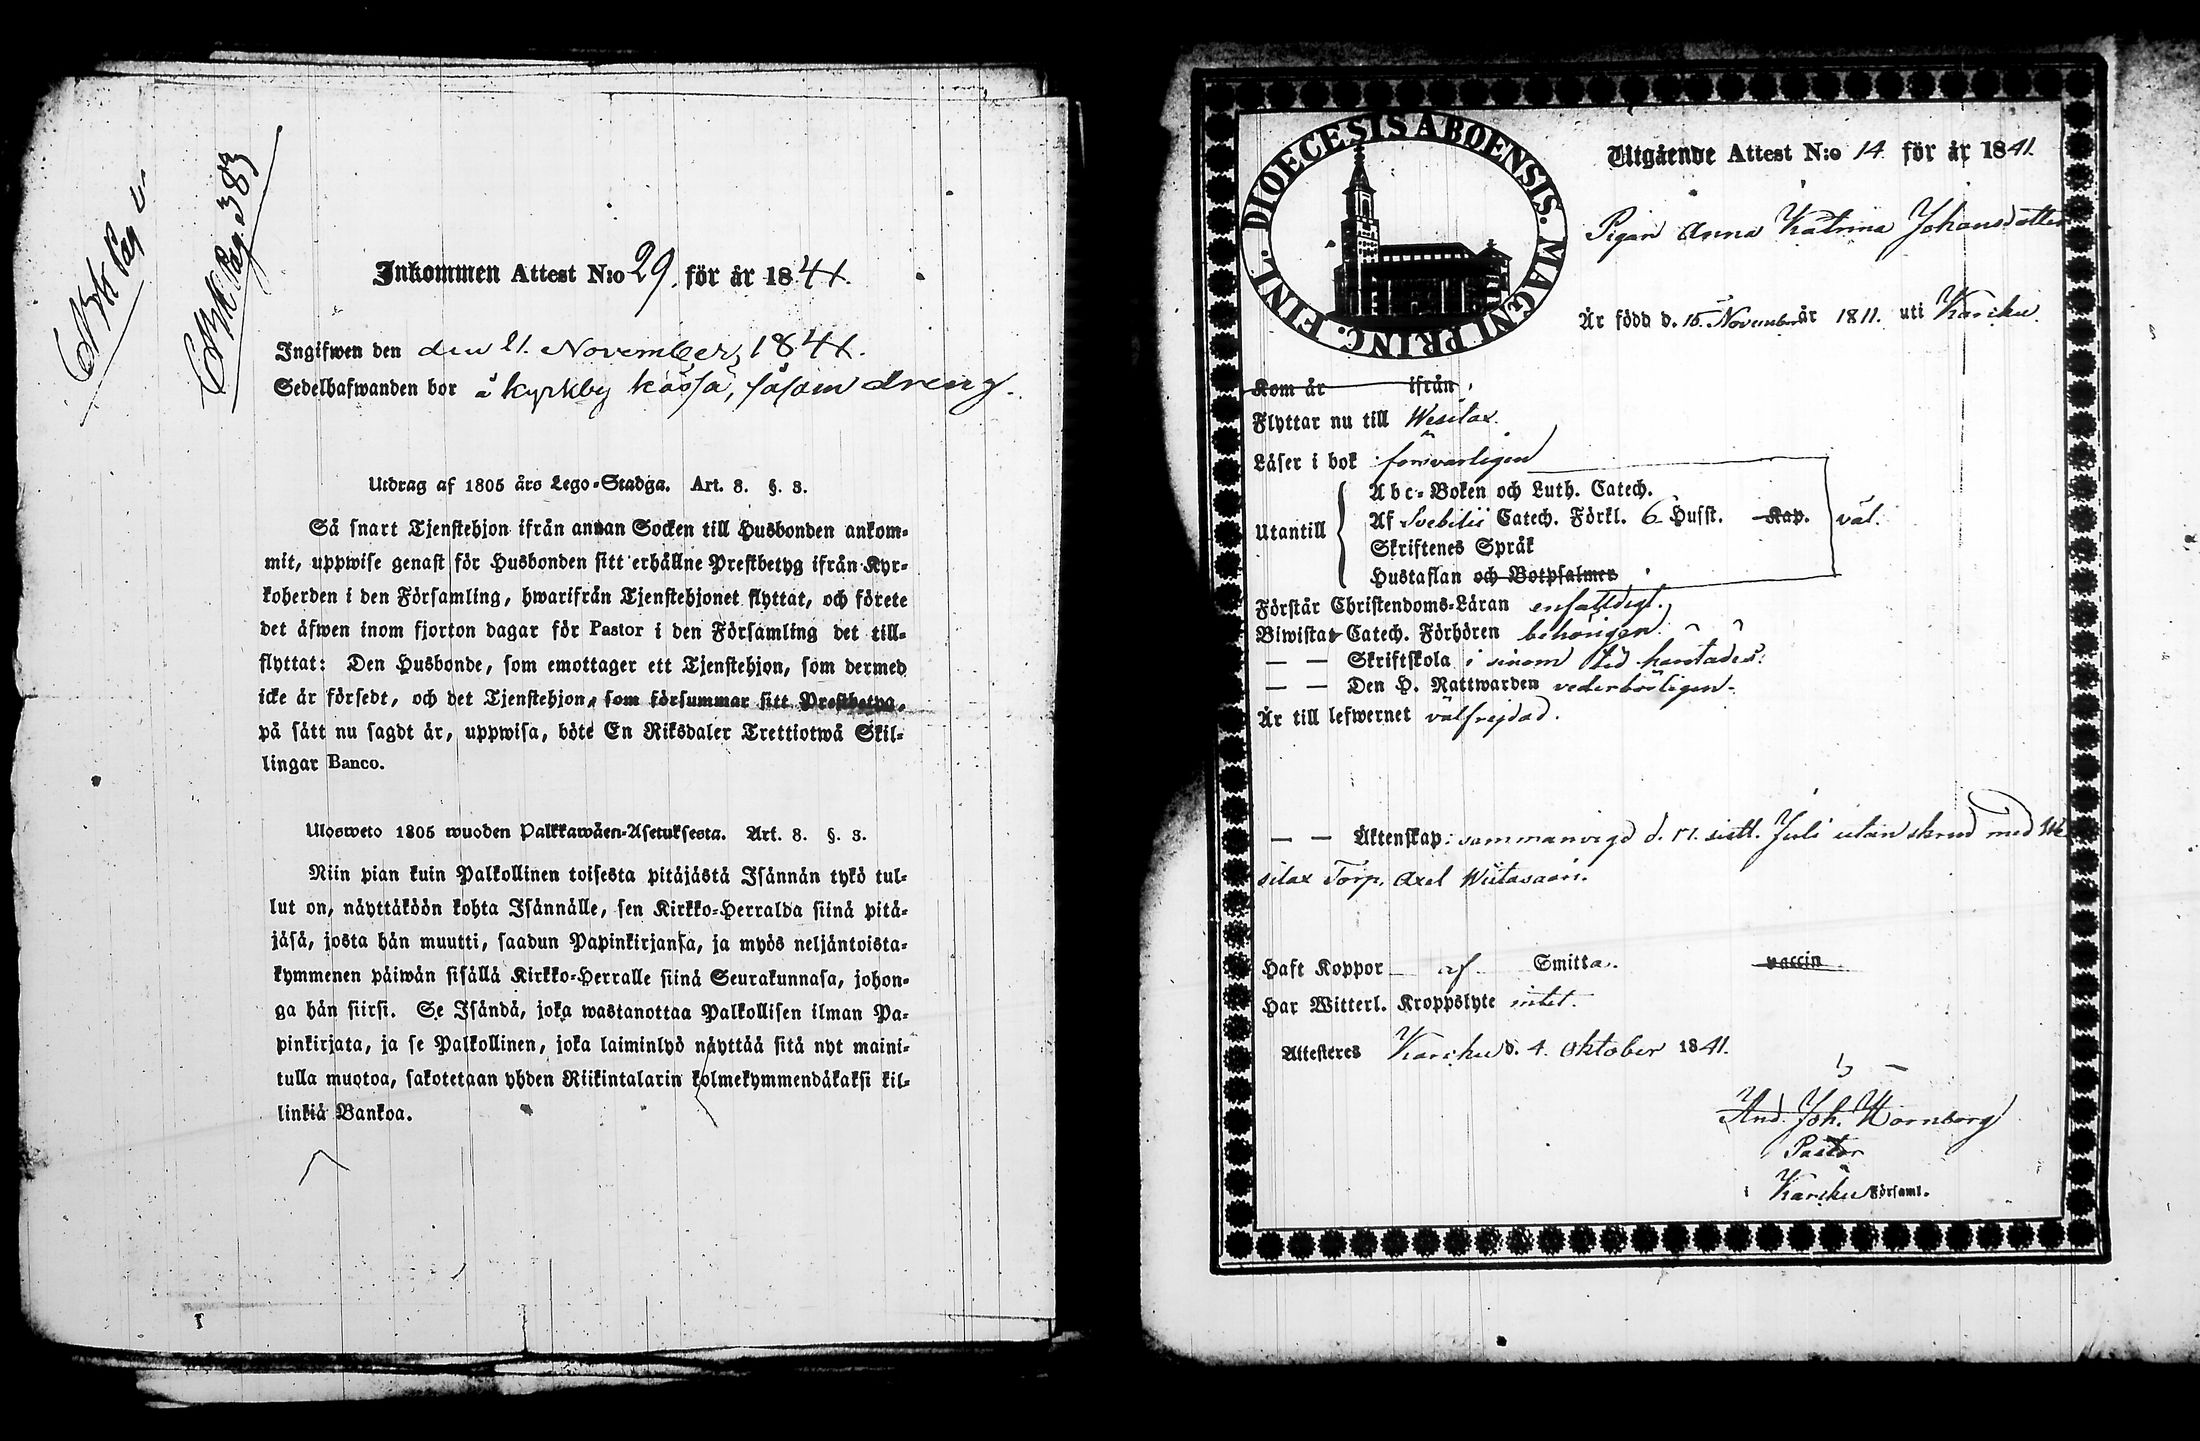 Inkommen Attest N:o 29. för år 1841.
Ingifwen den den 21. November 1841.
Sedelhafwanden bor å Kyrkby kåssa, såsom dreng.
Utdrag af 1805 års Lego-Stadga. Art. 8. §. 3.
Så snart Tjenstehjon ifrån annan Socken till Husbonden ankom-
mit, uppwise genast för Husbonden sitt erhållne Prestbetyg ifrån Kyr-
koherden i den Församling, hwarifrån Tjenstehjonet flyttat, och förete
det äfwen inom fjorton dagar för Pastor i den Församling det till-
flyttat: Den Husbonde, som emottager ett Tjenstehjon, som dermed
icke är försedt, och det Tjenstehjon, som försummar sitt Prestbetyg,
på sätt nu sagdt är, uppwisa, böte En Riksdaler Trettiotwå Skil-
lingar Banco.
Ulosweto 1805 wuoden Palkkawäen-Asetuksesta. Art. 8. §. 3.
Niin pian kuin Palkollinen toisesta pitäjästä Isännän tykö tul-
lut on, näyttäköön kohta Isännälle, sen Kirkko-Herralda siinä pitä-
jäsä, josta hän muutti, saadun Papinkirjansa, ja myös neljäntoista-
kymmenen päiwän sisällä Kirkko-Herralle siinä Seurakunnasa, johon-
ga hän siirsi. Se Isändä, joka wastanottaa Palkollisen ilman Pa-
pinkirjata, ja se Palkollinen, joka laiminlyö näyttää sitä nyt maini-
tulla muotoa, sakotetaan yhden Riikintalarin kolmekymmendäkaksi kil-
linkiä Bankoa.
DIOECESIS ABOENSIS. MAGNI PRINC. FINL.
Utgående Attest N:o 14 för år 1841.
Pigan Anna Katrina Johansdotter
Är född d. 15 November år 1811. uti Karcku.
Kom år ifrån
Flyttar nu till Wesilax.
Läser i bok försvarligen
Utantill
Abc-Boken och Luth. Catech.
Af Svebilii Catech. Förkl. 6 Hufst. Kap.
Skriftenes Språk
Hustaflan och Botpsalmer
väl.
Förstår Christendoms-Läran enfalldigt.
Biwistat Catech. Förhören behörigen.
— — Skriftskola i sinom tid
— — Den H. Nattwarden vederbörligen.
Är till lefwernet välfrejdad.
— — Äktenskap: sammanvigd d. 11. sistl. Juli utan skrud med We
silax Torp. Axel Wiitasaari.
Haft Koppor af Smitta. vaccin
Har Witterl. Kroppslyte intet.
Attesteres Karcku d. 4. Oktober 1841.
And. Joh. Wörnborg
Pastor
i Karcku Församl.